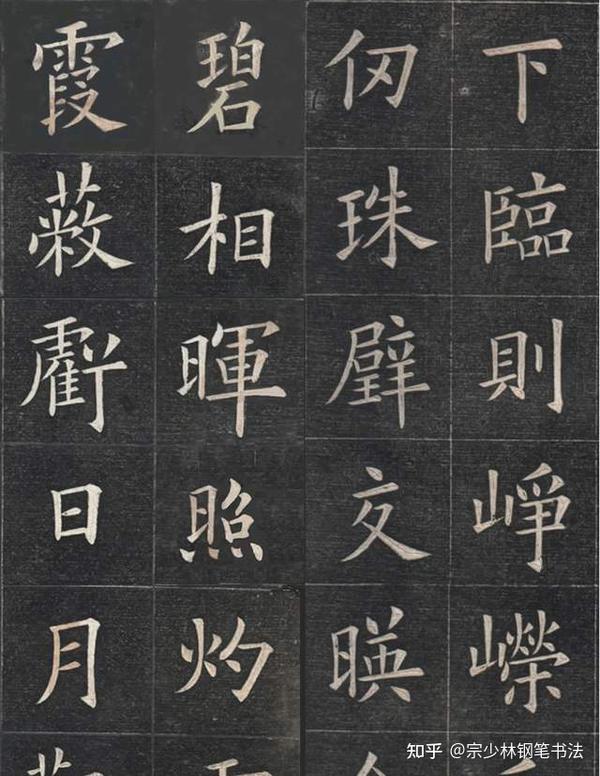 下臨則崢嶸
仞珠璧交暎
碧相暉照灼
霞蔽虧日月
知乎 @宗少林钢笔书法